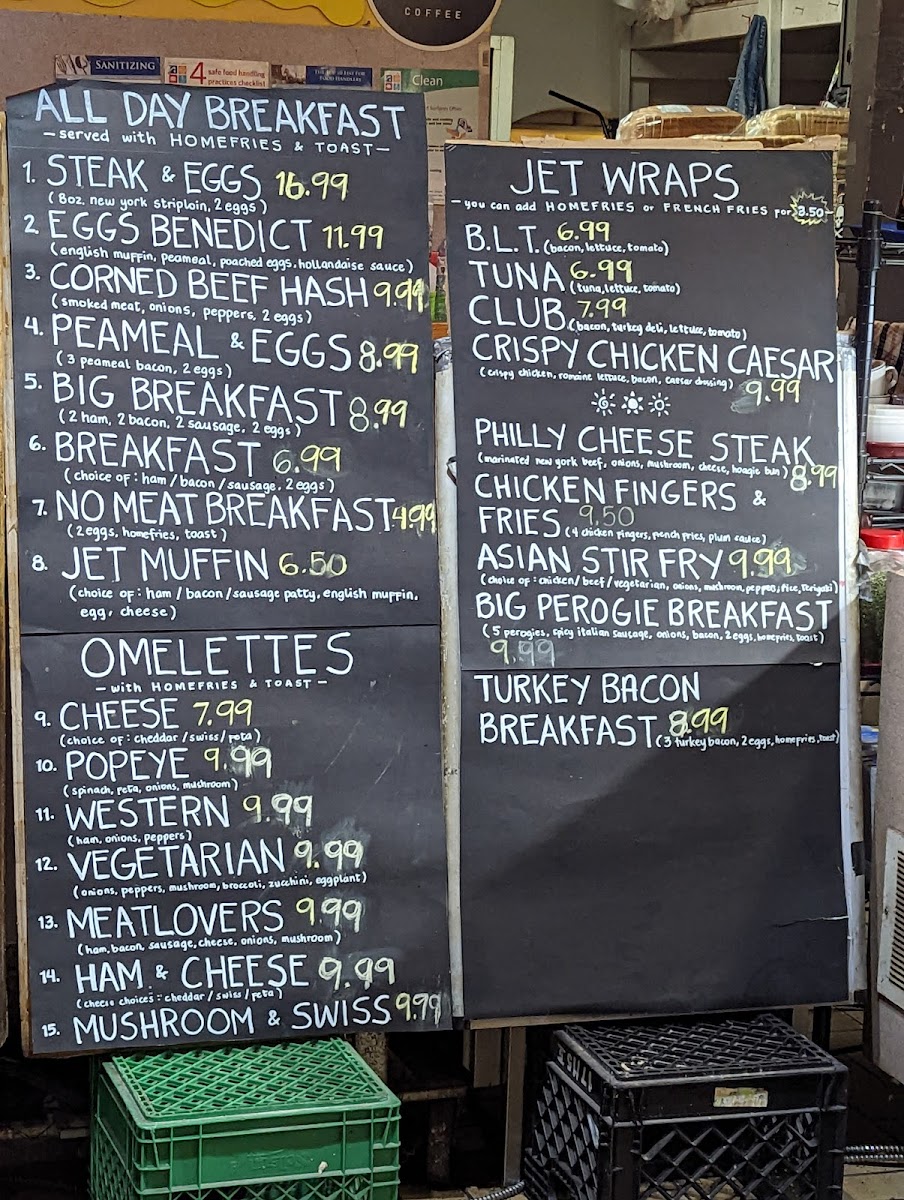 COFFEE
SANITIZING
4 safe food handling
practices checklist
Clean
ALL DAY BREAKFAST
- served with HOMEFRIES & TOAST -
1. STEAK & EGGS 16.99
(8oz. new york striploin, 2 eggs)
2. EGGS BENEDICT 11.99
(english muffin, peameal, poached eggs, hollandaise sauce)
3. CORNED BEEF HASH 9.99
(smoked meat, onions, peppers, 2 eggs)
4. PEAMEAL & EGGS 8.99
(3 peameal bacon, 2 eggs)
5. BIG BREAKFAST 8.99
(2 ham, 2 bacon, 2 sausage, 2 eggs)
6. BREAKFAST 6.99
(choice of: ham / bacon / sausage, 2 eggs)
7. NO MEAT BREAKFAST 4.99
(2 eggs, homefries, toast)
8. JET MUFFIN 6.50
(choice of: ham / bacon / sausage patty, english muffin,
egg, cheese)
OMELETTES
- with HOMEFRIES & TOAST -
9. CHEESE 7.99
(choice of: cheddar / swiss / feta)
10. POPEYE 9.99
(spinach, feta, onions, mushroom)
11. WESTERN 9.99
(ham, onions, peppers)
12. VEGETARIAN 9.99
(onions, peppers, mushroom, broccoli, zucchini, eggplant)
13. MEATLOVERS 9.99
(ham, bacon, sausage, cheese, onions, mushroom)
14. HAM & CHEESE 9.99
(cheese choices: cheddar / swiss / feta)
15. MUSHROOM & SWISS 9.99
JET WRAPS
- you can add HOMEFRIES or FRENCH FRIES for 3.50 -
B.L.T. 6.99
(bacon, lettuce, tomato)
TUNA 6.99
(tuna, lettuce, tomato)
CLUB 7.99
(bacon, turkey deli, lettuce, tomato)
CRISPY CHICKEN CAESAR
(crispy chicken, romaine lettuce, bacon, caesar dressing) 9.99
PHILLY CHEESE STEAK
(marinated new york beef, onions, mushroom, cheese, hoagie bun) 8.99
CHICKEN FINGERS &
FRIES 9.50
(4 chicken fingers, french fries, plum sauce)
ASIAN STIR FRY 9.99
(choice of: chicken / beef / vegetarian, onions, mushroom, peppers, rice, teriyaki)
BIG PEROGIE BREAKFAST
(5 perogies, spicy italian sausage, onions, bacon, 2 eggs, homefries, toast)
9.99
TURKEY BACON
BREAKFAST 8.99
(3 turkey bacon, 2 eggs, homefries, toast)